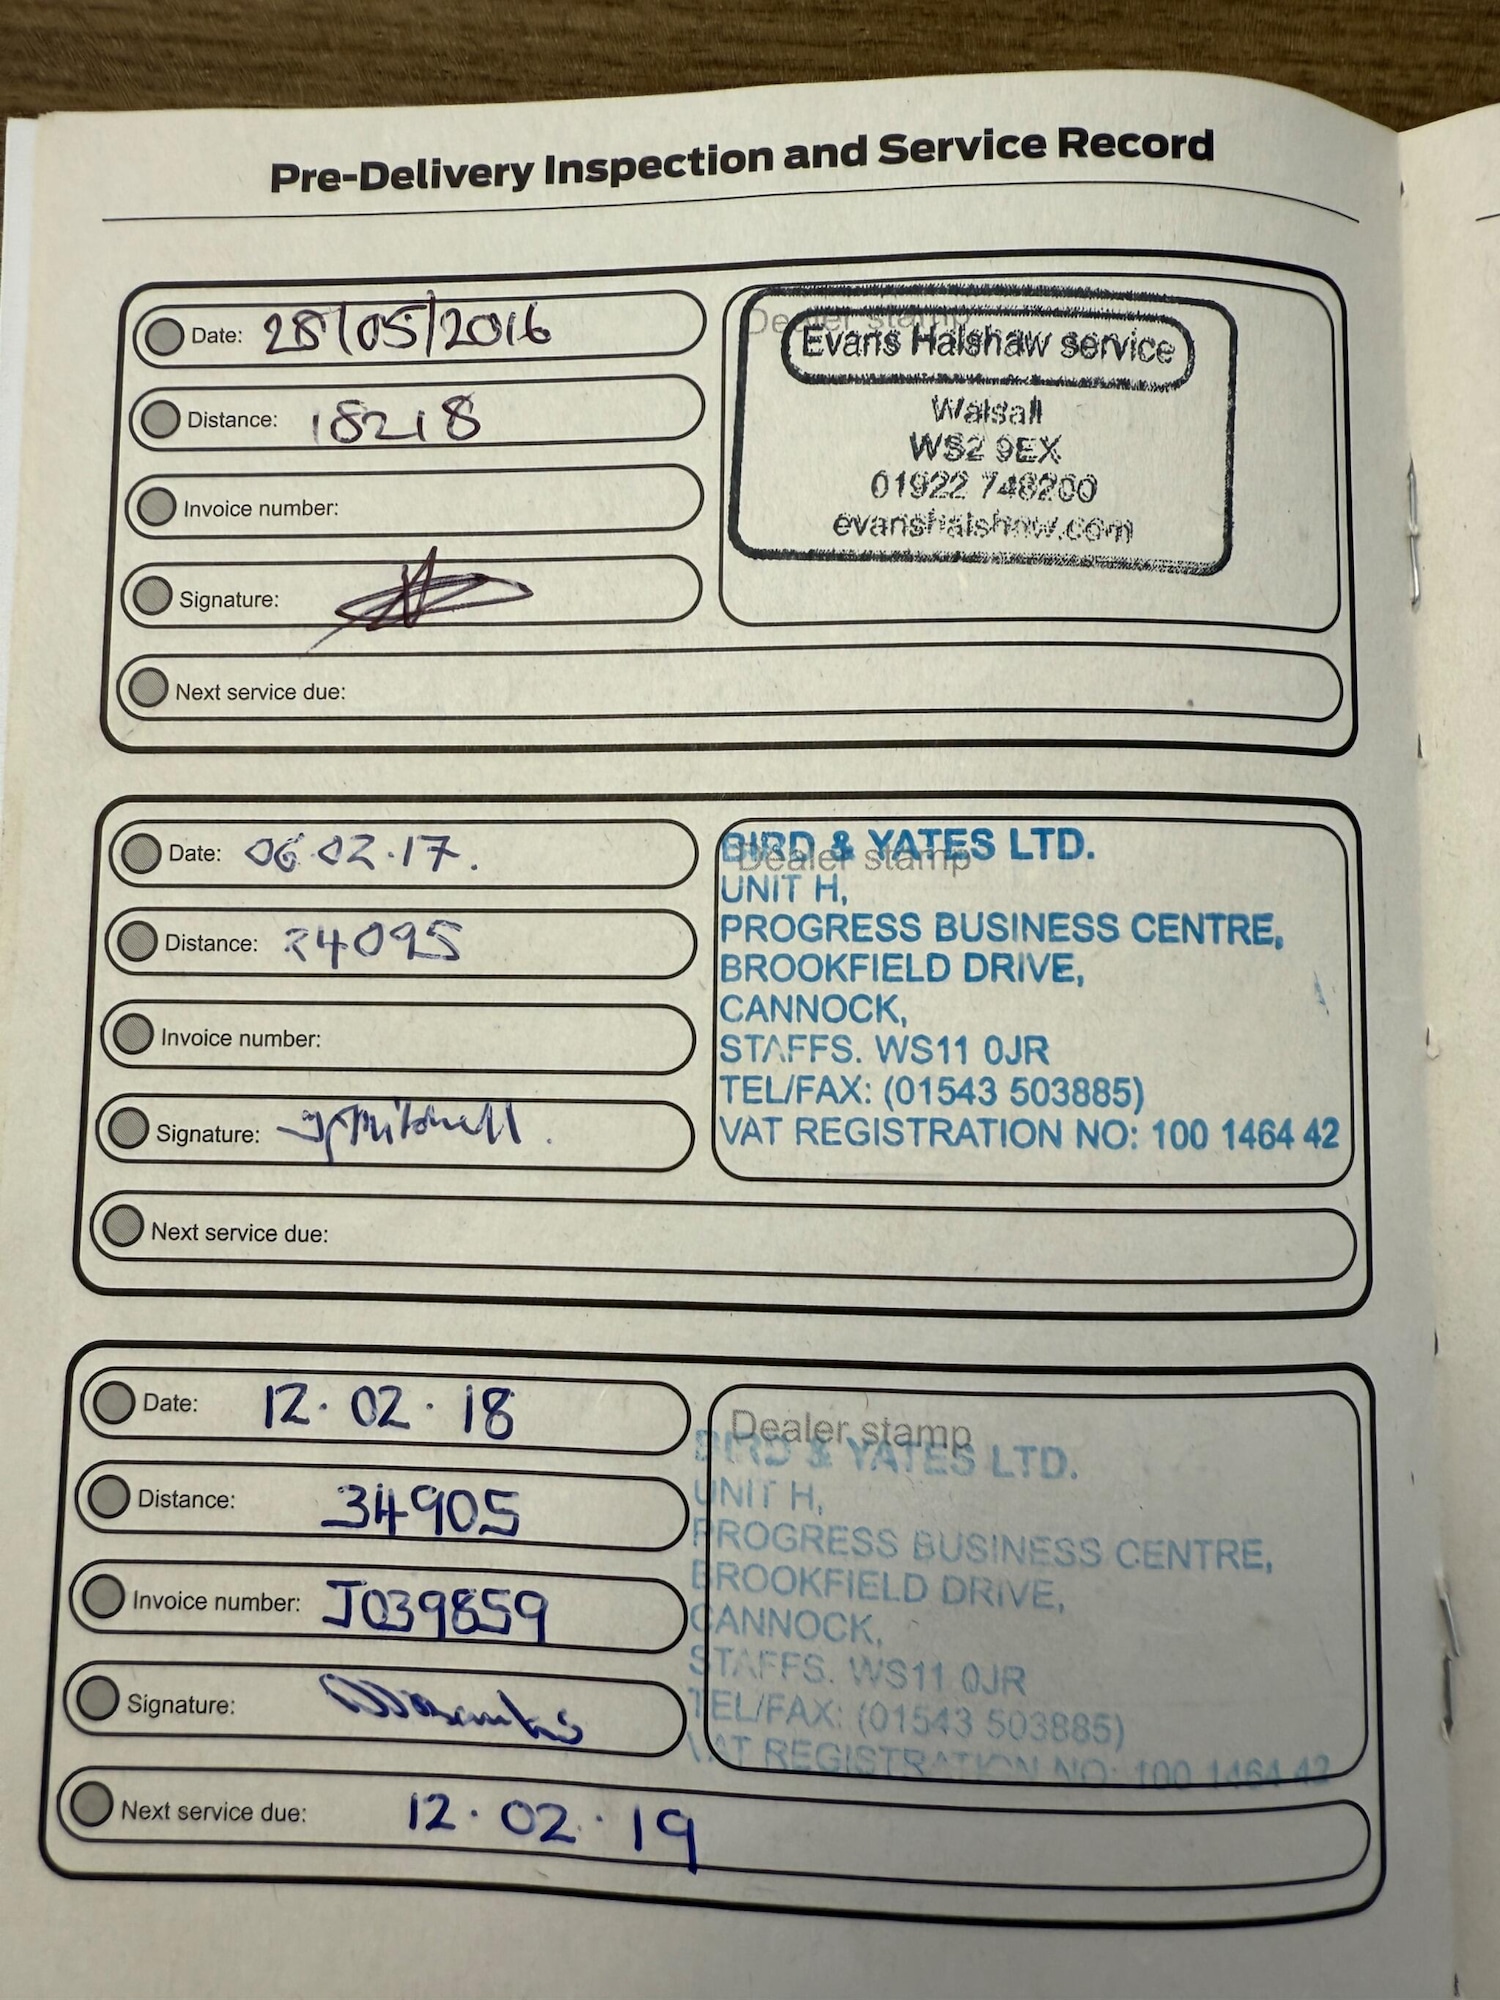 Pre-Delivery Inspection and Service Record
Date: 28/05/2016
Distance: 18218
Invoice number:
Signature:
Next service due:
Dealer stamp
Evans Halshaw service
Walsall
WS2 9EX
01922 748200
evanshalshaw.com
Date: 06.02.17.
Distance: 24095
Invoice number:
Signature:
Next service due:
Dealer stamp
BIRD & YATES LTD.
UNIT H,
PROGRESS BUSINESS CENTRE,
BROOKFIELD DRIVE,
CANNOCK,
STAFFS. WS11 0JR
TEL/FAX: (01543 503885)
VAT REGISTRATION NO: 100 1464 42
Date: 12.02.18
Distance: 34905
Invoice number: J039859
Signature:
Next service due: 12.02.19
Dealer stamp
BIRD & YATES LTD.
UNIT H,
PROGRESS BUSINESS CENTRE,
BROOKFIELD DRIVE,
CANNOCK,
STAFFS. WS11 0JR
TEL/FAX: (01543 503885)
VAT REGISTRATION NO: 100 1464 42